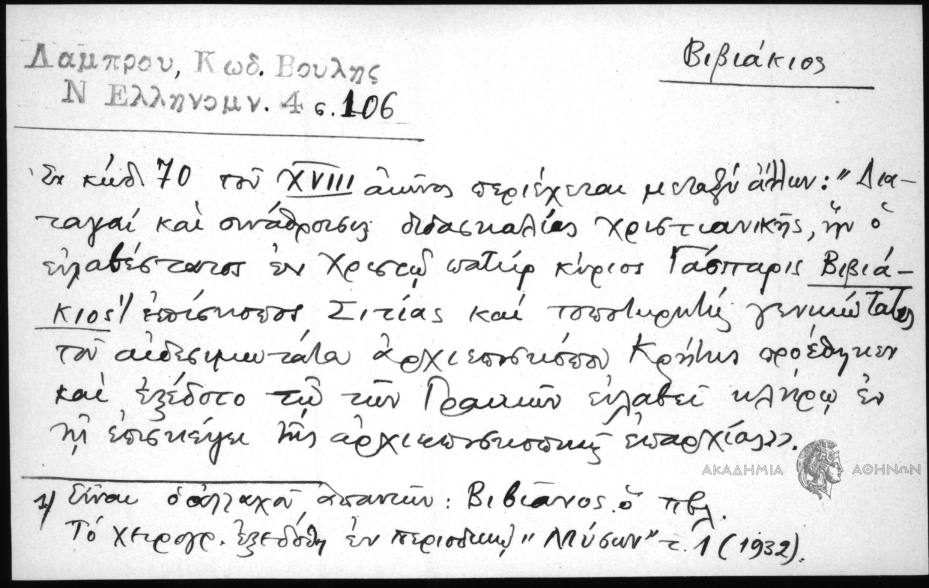 Βιβιάκιος
Λαμπρου, Κωδ. Βουλης
Ν Ελληνομν. 4 σ. 106
Ἐν κώδ. 70 τοῦ XVIII αἰῶνος περιέχεται μεταξὺ ἄλλων: "Δια-
ταγαί καὶ συνάθροισις διδασκαλίας χριστιανικῆς, ἣν ὁ
εὐλαβέστατος ἐν Χριστῷ πατὴρ κύριος Γάσπαρις Βιβιά-
κιος 1/ ἐπίσκοπος Σιτίας καὶ τοποτηρητὴς γενικώτατος
τοῦ αἰδεσιμωτάτου ἀρχιεπισκόπου Κρήτης προέθηκεν
καὶ ἐξέδοτο τῷ τῶν Γραικῶν εὐλαβεῖ κλήρῳ ἐν
τῇ ἐπισκέψει τῆς ἀρχιεπισκοπικῆς ἐπαρχίας».
ΑΚΑΔΗΜΙΑ ΑΘΗΝΩΝ
1/ Εἶναι ὁ ἀλλαχοῦ ἀπαντῶν: Βιβιᾶνος. ὃ πβλ.
Τό χειρογρ. ἐξεδόθη ἐν περιοδικῷ "Μύσων" τ. 1 (1932).